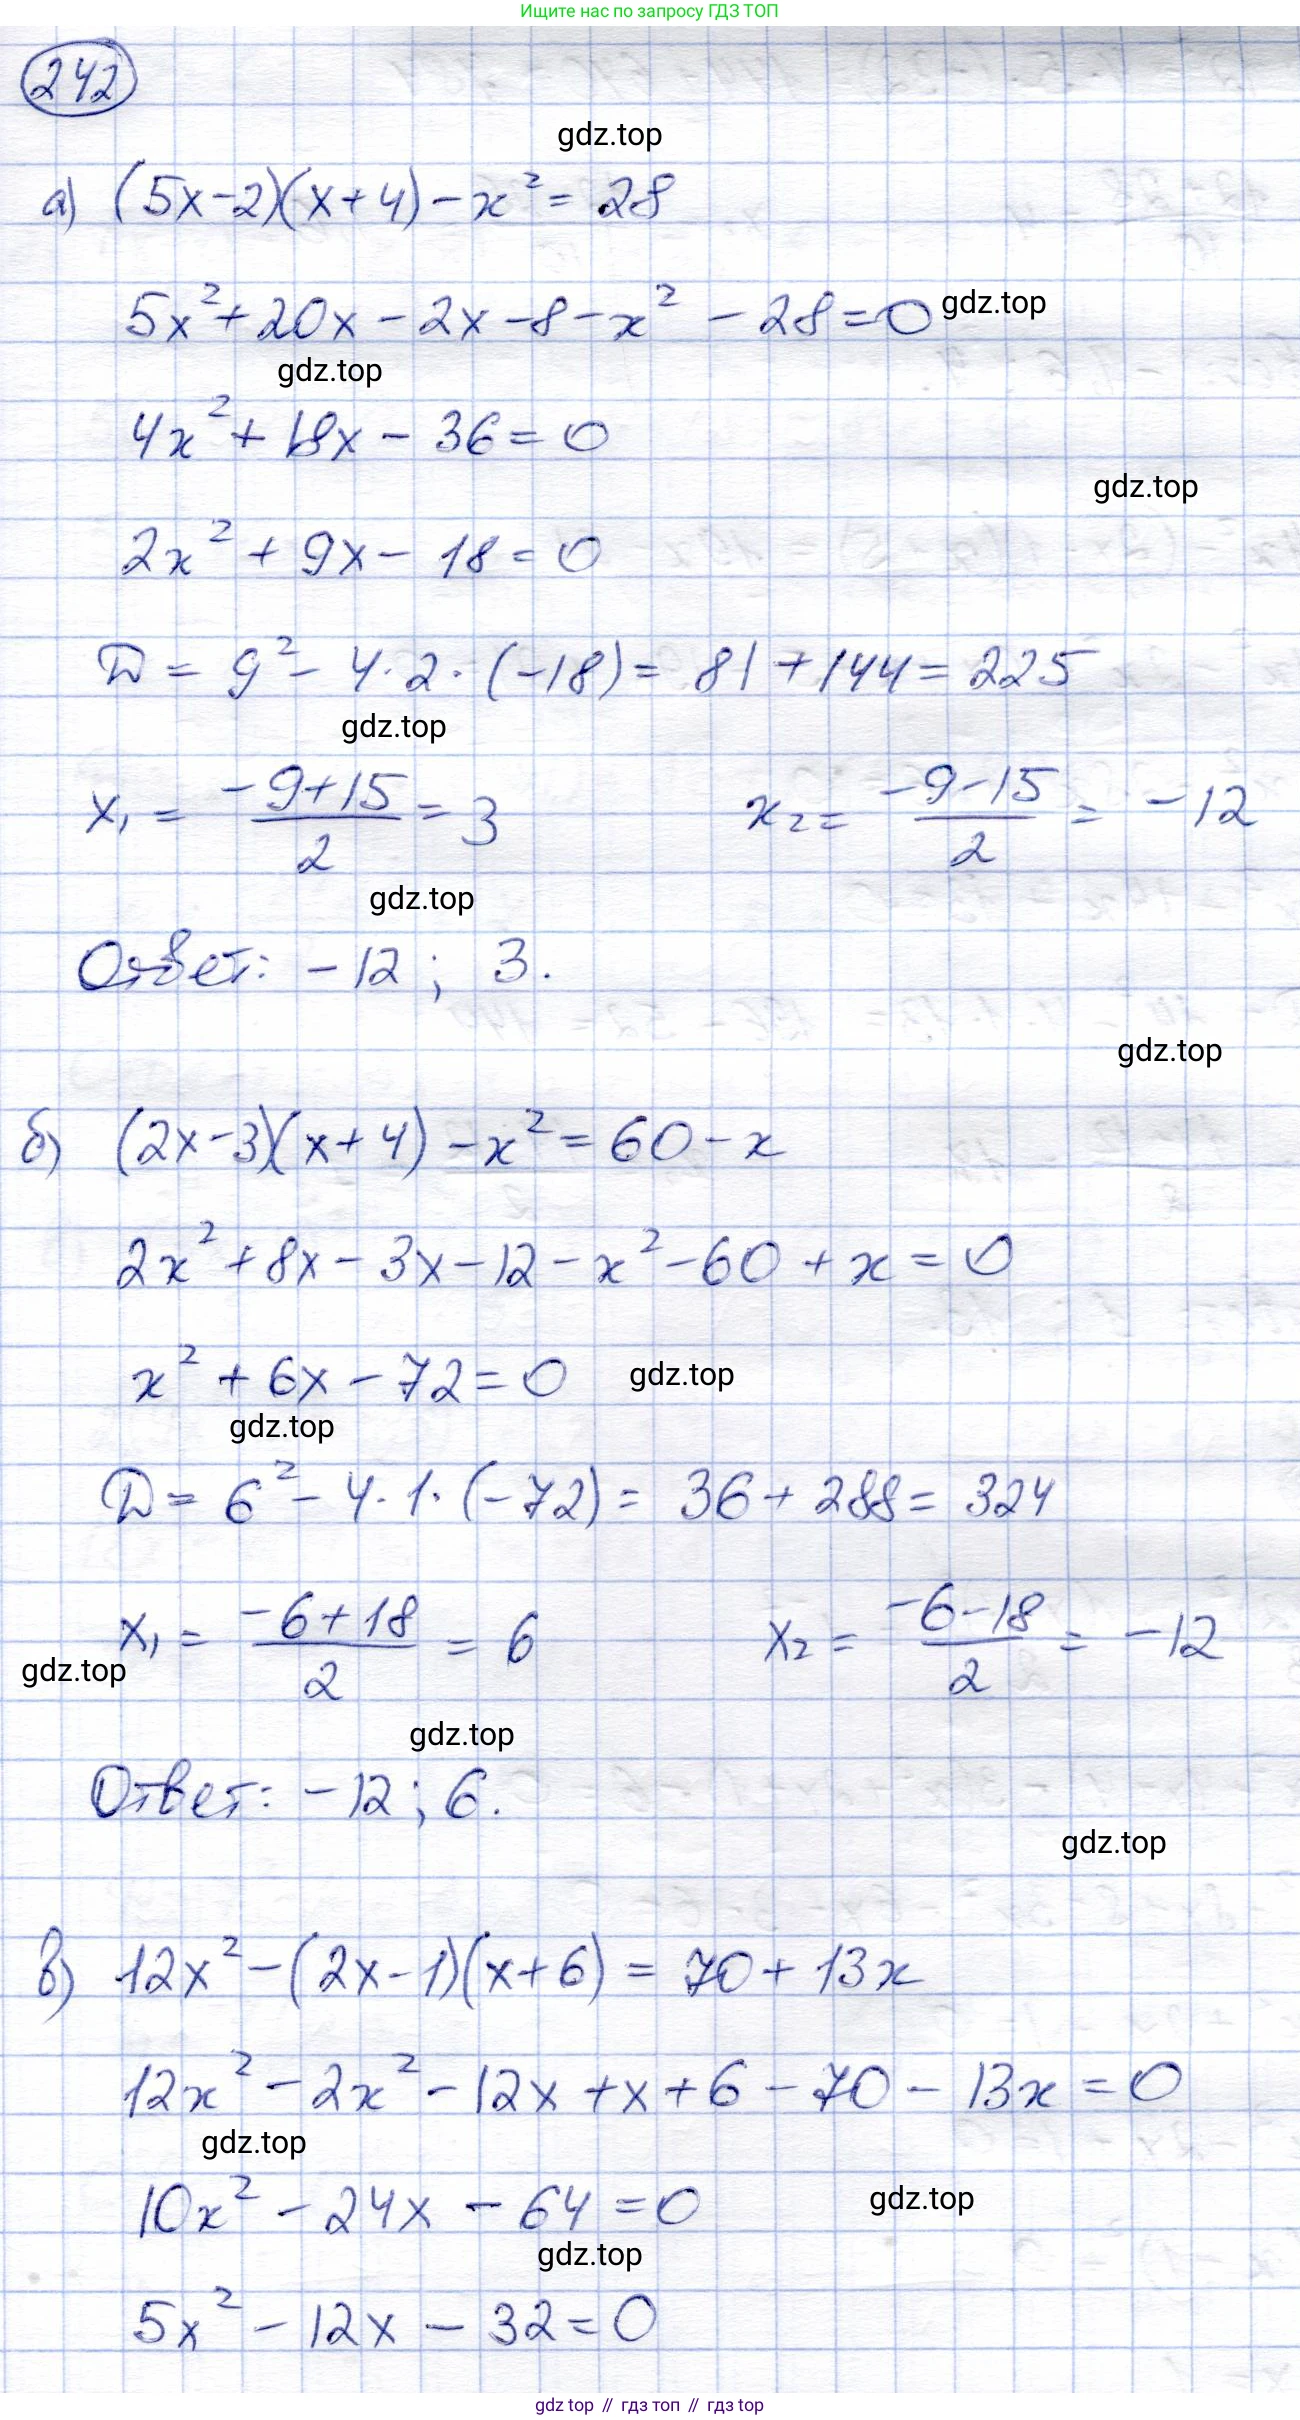 Ищите нас по запросу ГДЗ ТОП
242
gdz.top
а) (5x-2)(x+4)-x²=28
5x²+20x-2x-8-x²-28=0 gdz.top
gdz.top
4x²+18x-36=0
gdz.top
2x²+9x-18=0
D=9²-4·2·(-18)=81+144=225
gdz.top
x₁=(-9+15)/2=3 x₂=(-9-15)/2=-12
gdz.top
Ответ: -12; 3.
gdz.top
б) (2x-3)(x+4)-x²=60-x
2x²+8x-3x-12-x²-60+x=0
x²+6x-72=0 gdz.top
gdz.top
D=6²-4·1·(-72)=36+288=324
x₁=(-6+18)/2=6 x₂=(-6-18)/2=-12
gdz.top
gdz.top
Ответ: -12; 6.
gdz.top
в) 12x²-(2x-1)(x+6)=70+13x
12x²-2x²-12x+x+6-70-13x=0
gdz.top
10x²-24x-64=0 gdz.top
gdz.top
5x²-12x-32=0
gdz top // гдз топ // гдз top